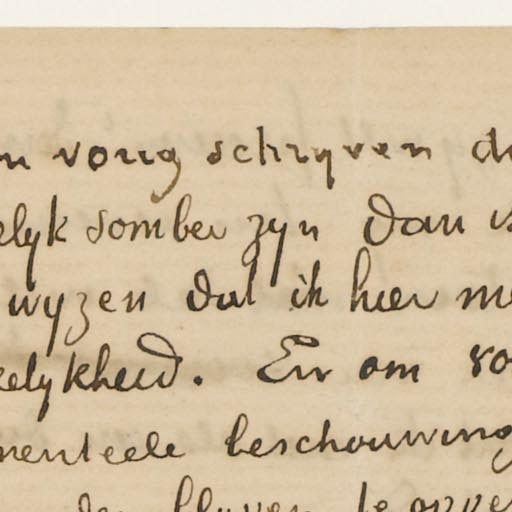 vorig schrijven
elyk somber zyn dan
wyzen dat ik hier
elykheid. En om
menteele beschouwing
blyven te